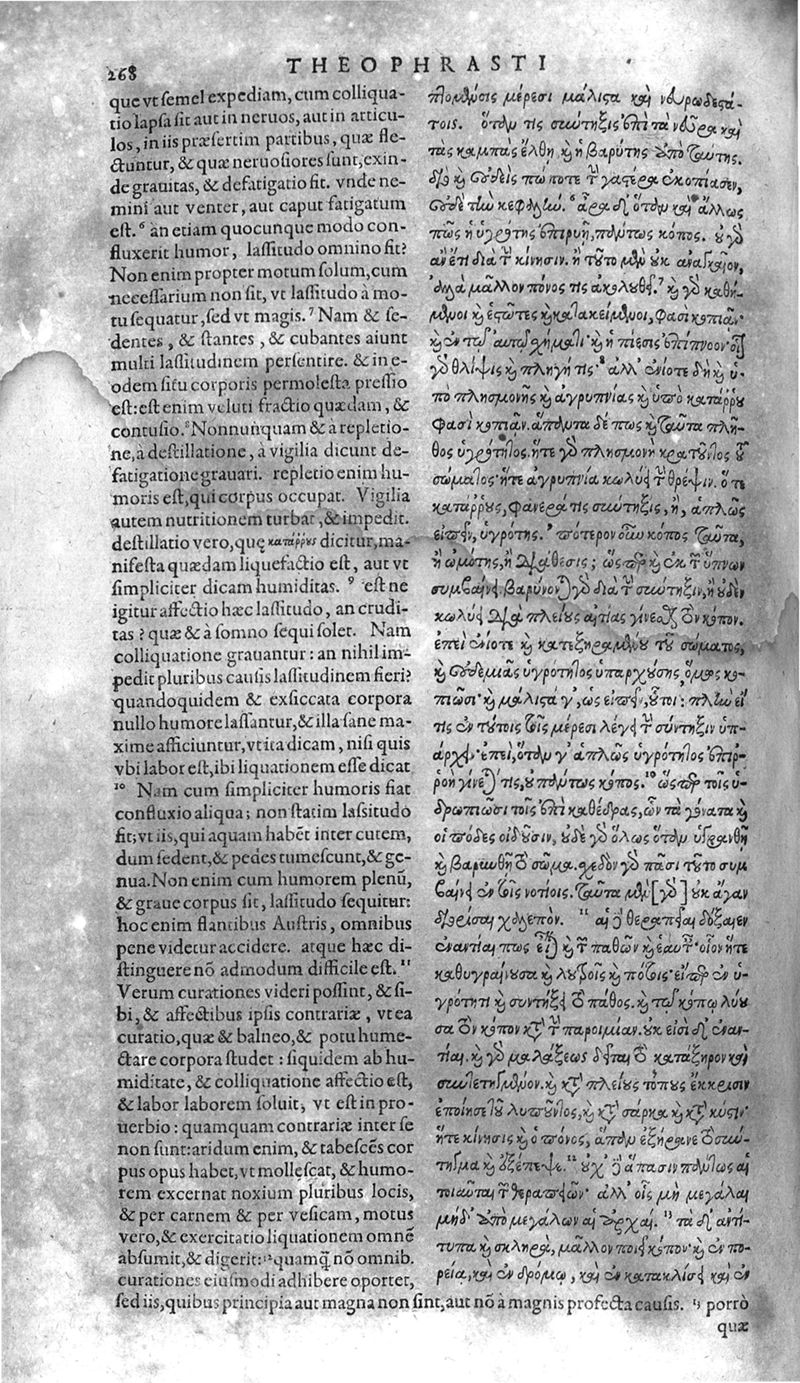 268
THEOPHRASTI
que vt semel expediam, cum colliqua-
tio lapsa sit aut in neruos, aut in articu-
los, in iis præsertim partibus, quæ fle-
ctuntur, & quæ neruosiores sunt, exin-
de grauitas, & defatigatio fit. vnde ne-
mini aut venter, aut caput fatigatum
est. ⁶ an etiam quocunque modo con-
fluxerit humor, lassitudo omnino fit?
Non enim propter motum solum, cum
necessarium non sit, vt lassitudo à mo-
tu sequatur, sed vt magis. ⁷ Nam & se-
dentes, & stantes, & cubantes aiunt
multi lassitudinem persentire. & in e-
odem situ corporis permolesta pressio
est: est enim veluti fractio quædam, &
contusio. ⁸ Nonnunquam & à repletio-
ne, à destillatione, à vigilia dicunt de-
fatigatione grauari. repletio enim hu-
moris est, qui corpus occupat. Vigilia
autem nutritionem turbat, & impedit.
destillatio vero, quę κατάῤῥους dicitur, ma-
nifesta quædam liquefactio est, aut vt
simpliciter dicam humiditas. ⁹ est ne
igitur affectio hæc lassitudo, an crudi-
tas? quæ & à somno sequi solet. Nam
colliquatione grauantur: an nihil im-
pedit pluribus causis lassitudinem fieri?
quandoquidem & exsiccata corpora
nullo humore lassantur, & illa sane ma-
xime afficiuntur, vt ita dicam, nisi quis
vbi labor est, ibi liquationem esse dicat
¹⁰ Nam cum simpliciter humoris fiat
confluxio aliqua; non statim lassitudo
fit; vt iis, qui aquam habēt inter cutem,
dum sedent, & pedes tumescunt, & ge-
nua. Non enim cum humorem plenū,
& graue corpus sit, lassitudo sequitur:
hoc enim flantibus Austris, omnibus
pene videtur accidere. atque hæc di-
stinguere nō admodum difficile est. ¹¹
Verum curationes videri possint, & si-
bi, & affectibus ipsis contrariæ, vt ea
curatio, quæ & balneo, & potu hume-
ctare corpora studet: siquidem ab hu-
miditate, & colliquatione affectio est,
& labor laborem soluit, vt est in pro-
uerbio: quamquam contrariæ inter se
non sunt: aridum enim, & tabescēs cor
pus opus habet, vt mollescat, & humo-
rem excernat noxium pluribus locis,
& per carnem & per vesicam, motus
vero, & exercitatio liquationem omnē
absumit, & digerit: ¹² quamq̃ nō omnib.
curationes eiusmodi adhibere oportet,
μέρεσι μάλιστα καὶ νευρωδεστά-
τοις. ὅταν τις σύντηξις ἐπὶ τὰ νεῦρα καὶ
τὰς καμπὰς ἔλθῃ καὶ ἡ βαρύτης ἀπὸ ταύτης.
διὸ καὶ οὐδεὶς πώποτε τὴν γαστέρα ἐκοπίασεν,
οὐδὲ τὴν κεφαλήν. ⁶ ἆρα δ' ὅταν καὶ ἄλλως
πῶς ἡ ὑγρότης ἐπιρυῇ, πάντως κόπος. οὐ γὰρ
ἂν ἔτι διὰ τὴν κίνησιν. ἢ τοῦτο μὲν οὐκ ἀναγκαῖον,
ἀλλὰ μᾶλλον πόνος τις ἀκολουθεῖ. ⁷ καὶ γὰρ καθή-
μενοι καὶ ἑστῶτες καὶ κατακείμενοι, φασὶ κοπιᾶν.
καὶ ἐν τῷ αὐτῷ σχήματι καὶ ἡ πίεσις ἐπίπονον
γὰρ θλίψις καὶ πληγή τις ⁸ ἀλλ' ἐνίοτε δὴ καὶ ὑ-
πὸ πλησμονῆς καὶ ἀγρυπνίας καὶ ὑπὸ κατάῤῥου
φασὶ κοπιᾶν. ἅπαντα δέ πως καὶ ταῦτα πλῆ-
θος ὑγρότητος. ἥτε γὰρ πλησμονὴ κρατοῦντος τοῦ
σώματος, ἥτε ἀγρυπνία κωλύει τὴν θρέψιν. ὅτε
κατάῤῥους, φανερά τις σύντηξις, ἢ, ἁπλῶς
εἰπεῖν, ὑγρότης. ⁹ πότερον οὖν κόπος ταῦτα,
ἢ ὠμότης, ἢ διάθεσις; ὥσπερ καὶ ἐκ τῶν ὕπνων
συμβαίνει. βαρύνονται γὰρ διὰ τὴν σύντηξιν, ἢ οὐδὲν
κωλύει διὰ πλείους αἰτίας γίνεσθαι τὸν κόπον.
ἐπεὶ ἐνίοτε καὶ κατεξηραμμένου τοῦ σώματος,
καὶ οὐδεμιᾶς ὑγρότητος ὑπαρχούσης, ὅμως κο-
πιῶσι καὶ μάλιστά γ', ὡς εἰπεῖν, οὗτοι: πλὴν εἴ
τις ἐν τούτοις τοῖς μέρεσι λέγει τὴν σύντηξιν ὑπ-
άρχειν. ἐπεὶ, ὅταν γ' ἁπλῶς ὑγρότητος ἐπιῤ-
ροὴ γίνεταί τις, οὐ πάντως κόπος. ¹⁰ ὥσπερ τοῖς ὑ-
δρωπιῶσι τοῖς ἐπὶ καθέδρας, ὧν τὰ γόνατα καὶ
οἱ πόδες οἰδοῦσιν, οὐδὲ γὰρ ὅλως ὅταν ὑγρανθῇ
καὶ βαρυνθῇ τὸ σῶμα. σχεδὸν γὰρ πᾶσι τοῦτο συμ
βαίνει ἐν τοῖς νοτίοις. ταῦτα μὲν [γὰρ] οὐκ ἄγαν
διορίσαι χαλεπόν. ¹¹ αἱ δὲ θεραπεῖαι δόξαιεν
ἐναντίαι πως εἶναι καὶ τῶν παθῶν καὶ ἑαυτῶν. οἷον ἥτε
καθυγραίνουσα καὶ λουτροῖς καὶ πότοις. εἴπερ ἐν ὑ-
γρότητι καὶ συντήξει τὸ πάθος. καὶ τῷ κόπῳ λύου
σα τὸν κόπον κατὰ τὴν παροιμίαν. οὐκ εἰσὶ δ' ἐναν-
τίαι. καὶ γὰρ μαλάξεως δεῖται τὸ κατάξηρον καὶ
συντετηγμένον. καὶ κατὰ πλείους τόπους ἔκκρισιν
ἐποίησε τοῦ λυποῦντος, καὶ κατὰ σάρκα καὶ κατὰ κύστιν.
ἥτε κίνησις καὶ ὁ πόνος, ἅπαν ἐξήρανε τὸ σύν-
τηγμα καὶ ἐξέπεψε. ¹² οὐχ δὲ ἅπασιν πάντως αἱ
τοιαῦται τῶν θεραπειῶν. ἀλλ' οἷς μὴ μεγάλαι
μηδ' ἀπὸ μεγάλων αἱ ἀρχαί. ¹³ τὰ δ' ἀντί-
τυπα καὶ σκληρὰ, μᾶλλον ποιεῖ κόπον. καὶ ἐν πο-
ρείᾳ, καὶ ἐν δρόμῳ, καὶ ἐν κατακλίσει καὶ ἐν
sed iis, quibus principia aut magna non sint, aut nō à magnis profecta causis. ¹³ porrò
quæ